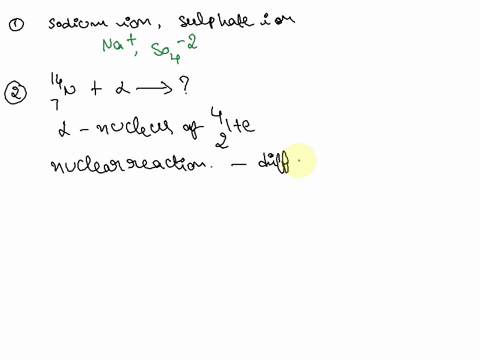 ① sodium ion, sulphate ion
Na⁺, SO₄⁻²
② ¹⁴₇N + α ⟶ ?
α - nucleus of ⁴₂He
nuclear reaction. - diff.